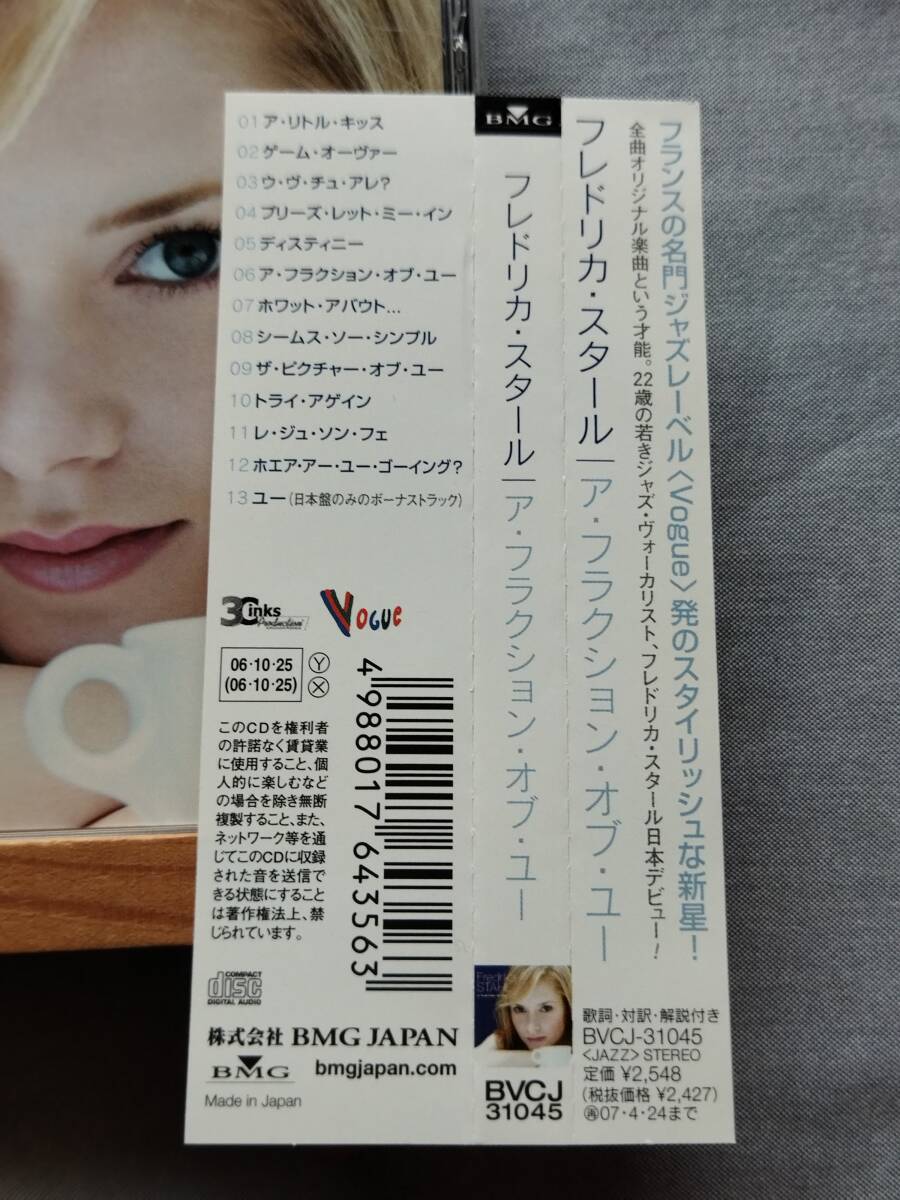 01 ア・リトル・キッス
02 ゲーム・オーヴァー
03 ウ・ヴ・チュ・アレ?
04 プリーズ・レット・ミー・イン
05 ディスティニー
06 ア・フラクション・オブ・ユー
07 ホワット・アバウト...
08 シームス・ソー・シンプル
09 ザ・ピクチャー・オブ・ユー
10 トライ・アゲイン
11 レ・ジュ・ソン・フェ
12 ホエア・アー・ユー・ゴーイング?
13 ユー(日本盤のみのボーナストラック)
3Cinks
Production
VOGUE
06・10・25 Ⓨ
(06・10・25) Ⓧ
このCDを権利者
の許諾なく賃貸業
に使用すること、個
人的に楽しむなど
の場合を除き無断
複製すること、また、
ネットワーク等を通
じてこのCDに収録
された音を送信で
きる状態にすること
は著作権法上、禁
じられています。
4 988017 643563
COMPACT
disc
DIGITAL AUDIO
株式会社 BMG JAPAN
BMG
bmgjapan.com
Made in Japan
BMG
フレドリカ・スタール|ア・フラクション・オブ・ユー
BVCJ
31045
フランスの名門ジャズレーベル〈Vogue〉発のスタイリッシュな新星!
全曲オリジナル楽曲という才能。22歳の若きジャズ・ヴォーカリスト、フレドリカ・スタール日本デビュー!
フレドリカ・スタール|ア・フラクション・オブ・ユー
歌詞・対訳・解説付き
BVCJ-31045
<JAZZ> STEREO
定価 ¥2,548
(税抜価格 ¥2,427)
㋬07・4・24まで